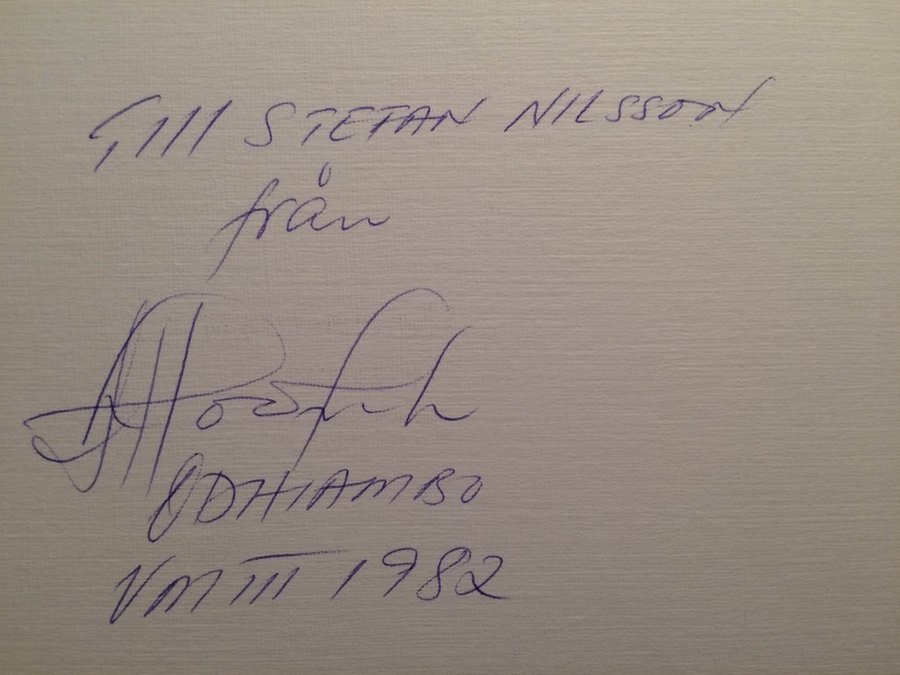 Till STEFAN NILSSON
från
ODHIAMBO
VM III 1982